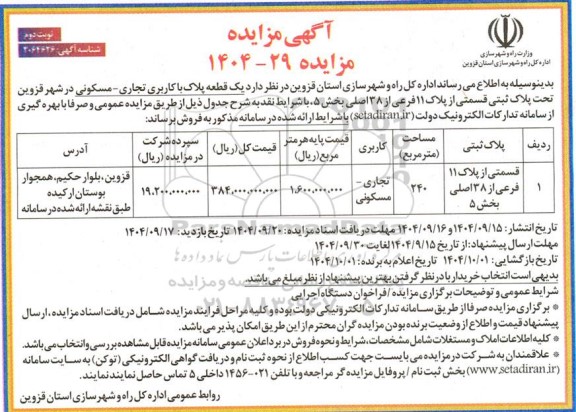 آگهی مزایده
مزایده ۲۹- ۱۴۰۴
نوبت دوم
شناسه آگهی: ۲۰۶۴۶۲۶
وزارت راه و شهرسازی
اداره کل راه و شهرسازی استان قزوین
بدینوسیله به اطلاع می رساند اداره کل راه و شهرسازی استان قزوین در نظر دارد یک قطعه پلاک با کاربری تجاری- مسکونی در شهر قزوین
تحت پلاک ثبتی قسمتی از پلاک ۱۱ فرعی از ۳۸ اصلی بخش ۵، با شرایط نقد به شرح جدول ذیل از طریق مزایده عمومی و صرفا با بهره گیری
از سامانه تدارکات الکترونیک دولت (setadiran.ir) با شرایط ارائه شده در سامانه مذکور به فروش برساند:
ردیف | پلاک ثبتی | مساحت (مترمربع) | کاربری | قیمت پایه هر متر مربع (ریال) | قیمت کل (ریال) | سپرده شرکت در مزایده (ریال) | آدرس
۱ | قسمتی از پلاک ۱۱ فرعی از ۳۸ اصلی بخش ۵ | ۲۴۰ | تجاری- مسکونی | ۱.۶۰۰.۰۰۰.۰۰۰ | ۳۸۴.۰۰۰.۰۰۰.۰۰۰ | ۱۹.۲۰۰.۰۰۰.۰۰۰ | قزوین، بلوار حکیم، همجوار بوستان ارکیده طبق نقشه ارائه شده در سامانه
تاریخ انتشار: ۱۴۰۴/۰۹/۱۵ و ۱۴۰۴/۰۹/۱۶ مهلت دریافت اسناد مزایده: ۱۴۰۴/۰۹/۲۰ تاریخ بازدید: ۱۴۰۴/۰۹/۱۷
مهلت ارسال پیشنهاد: از تاریخ ۱۴۰۴/۰۹/۱۵ لغایت ۱۴۰۴/۰۹/۳۰
تاریخ بازگشایی: ۱۴۰۴/۱۰/۰۱ تاریخ اعلام به برنده: ۱۴۰۴/۱۰/۰۱
بدیهی است انتخاب خریدار با در نظر گرفتن بهترین پیشنهاد از نظر مبلغ می باشد.
شرایط عمومی و توضیحات برگزاری مزایده / فراخوان دستگاه اجرایی
* برگزاری مزایده صرفا از طریق سامانه تدارکات الکترونیکی دولت بوده و کلیه مراحل فرآیند مزایده شامل دریافت اسناد مزایده، ارسال
پیشنهاد قیمت و اطلاع از وضعیت برنده بودن مزایده گران محترم از این طریق امکان پذیر می باشد.
* کلیه اطلاعات املاک و مستغلات شامل مشخصات، شرایط و نحوه فروش در برد اعلان عمومی سامانه مزایده قابل مشاهده بررسی و انتخاب می باشد.
* علاقمندان به شرکت در مزایده می بایست جهت کسب اطلاع از نحوه ثبت نام و دریافت گواهی الکترونیکی (توکن) به سایت سامانه
(www.setadiran.ir) بخش ثبت نام / پروفایل مزایده گر مراجعه و با تلفن ۰۲۱-۱۴۵۶ داخلی ۵ تماس حاصل نمایند نمایند.
روابط عمومی اداره کل راه و شهرسازی استان قزوین